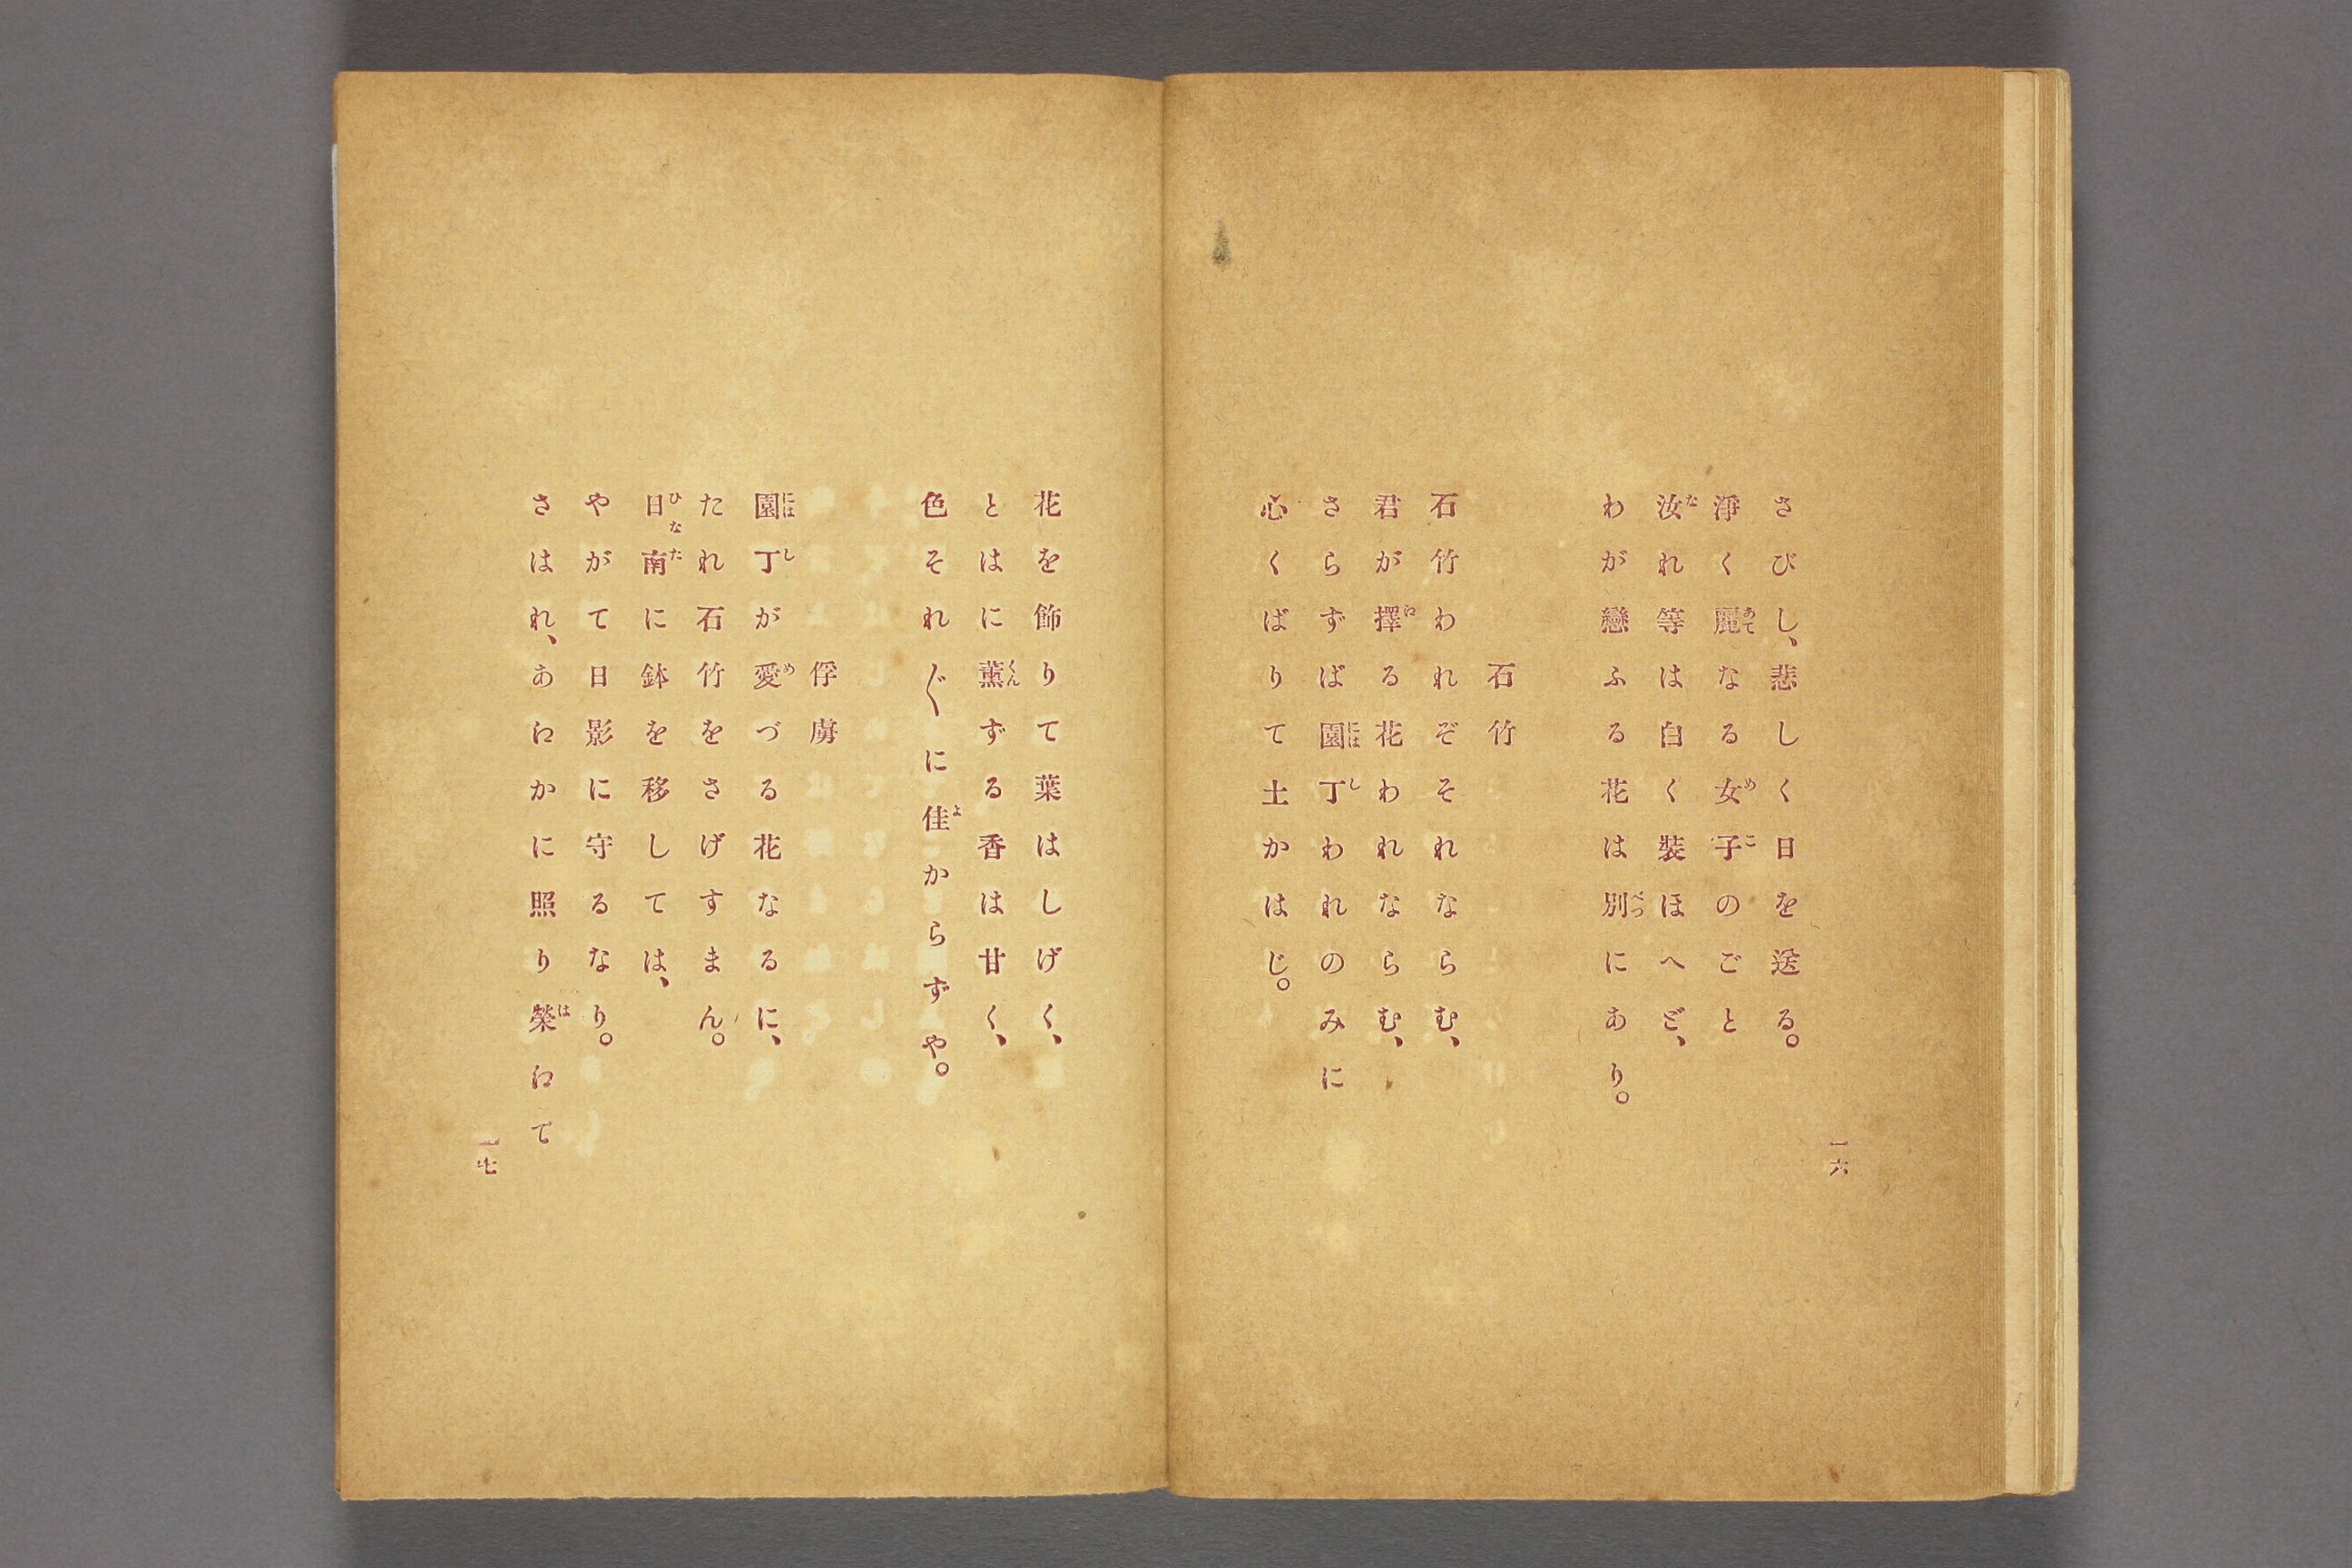 一六
さびし、悲しく日を送る。
淨く麗なる女子のごと
汝れ等は白く裝ほへど、
わが戀ふる花は別にあり。
石竹
石竹われぞそれならむ、
君が擇る花われならむ、
さらずば園丁われのみに
心くばりて土かはじ。
花を飾りて葉はしげく、
とはに薫ずる香は甘く、
色それ〴〵に佳からずや。
俘虜
園丁が愛づる花なるに、
たれ石竹をさげすまん。
日南に鉢を移しては、
やがて日影に守るなり。
さはれ、あえかに照り榮えて
一七